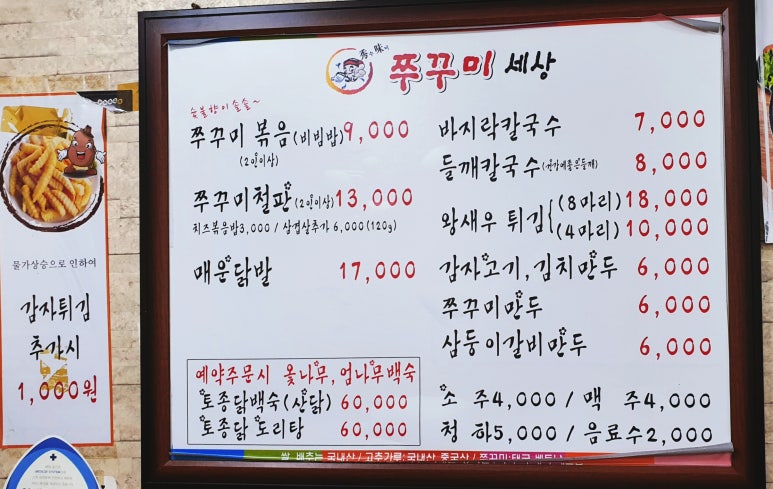 물가상승으로 인하여
감자튀김
추가시
1,000원
쭈꾸미 세상
숯불향이솔솔~
쭈꾸미 볶음(비빔밥) 9,000
(2인이상)
쭈꾸미철판(2인이상) 13,000
치즈볶음밥3,000 / 삼겹살추가 6,000(120g)
매운닭발 17,000
예약주문시 옻나무, 엄나무백숙
토종닭백숙(산닭) 60,000
토종닭 도리탕 60,000
바지락칼국수 7,000
들깨칼국수 8,000
왕새우 튀김 (8마리) 18,000
(4마리) 10,000
감자고기, 김치만두 6,000
쭈꾸미만두 6,000
삼둥이갈비만두 6,000
소 주4,000 / 맥 주4,000
청 하5,000 / 음료수2,000
쌀, 배추는 국내산 / 고추가루: 국내산, 중국산 / 쭈꾸미:태국, 베트남